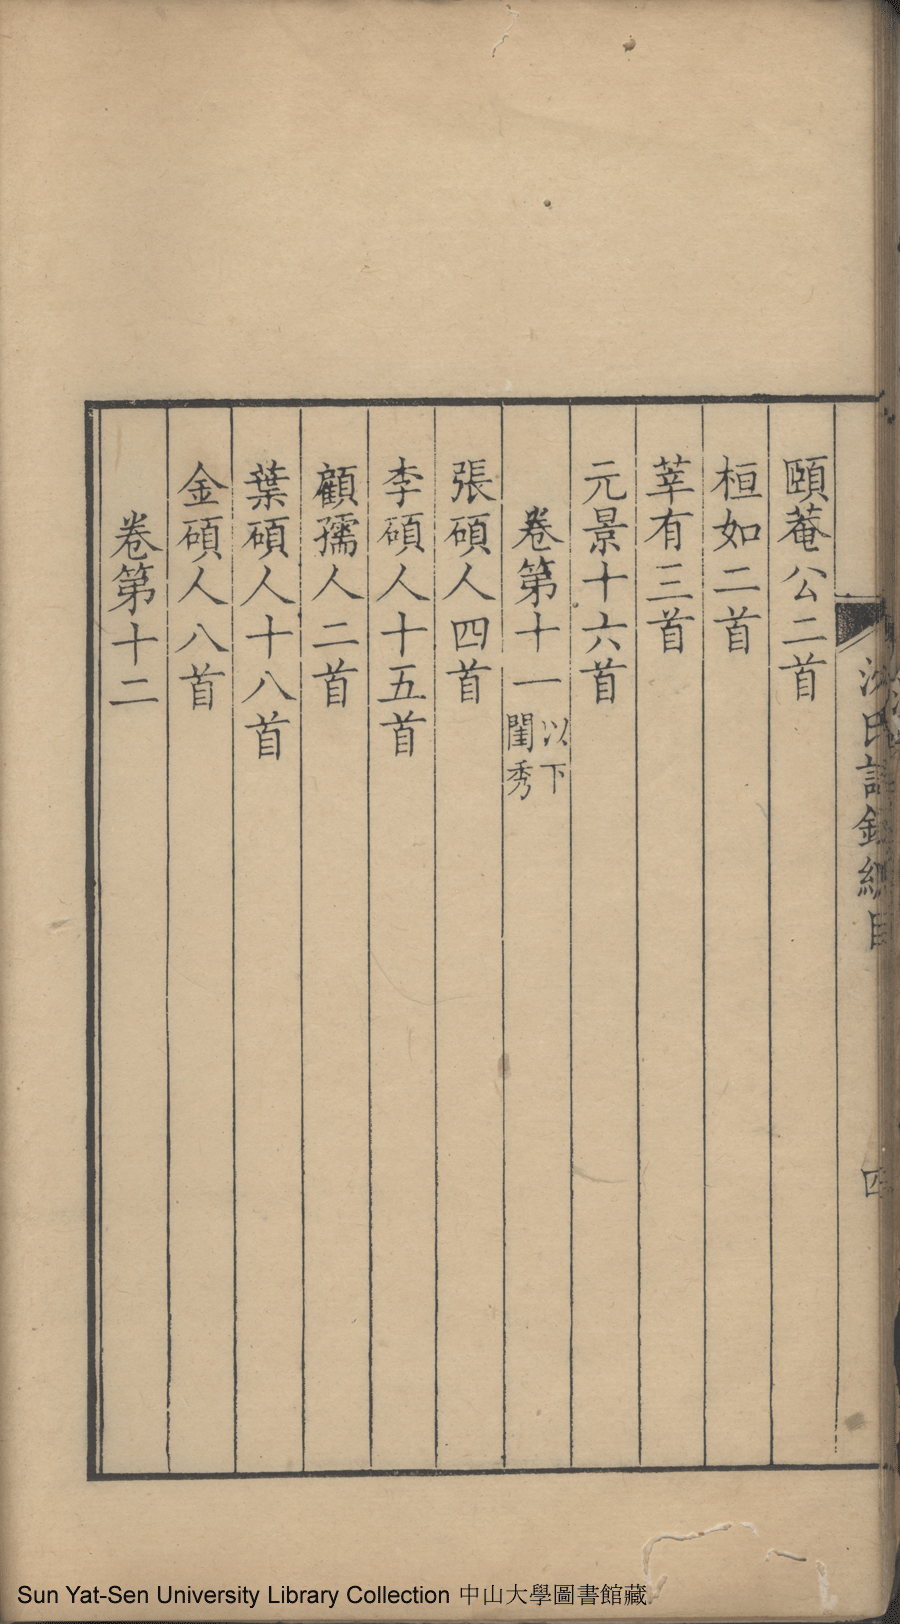 頤菴公二首
桓如二首
莘有三首
元景十六首
卷第十一 以下閨秀
張碩人四首
李碩人十五首
顧孺人二首
葉碩人十八首
金碩人八首
卷第十二
沙氏詩鈔總目
四
Sun Yat-Sen University Library Collection 中山大學圖書館藏